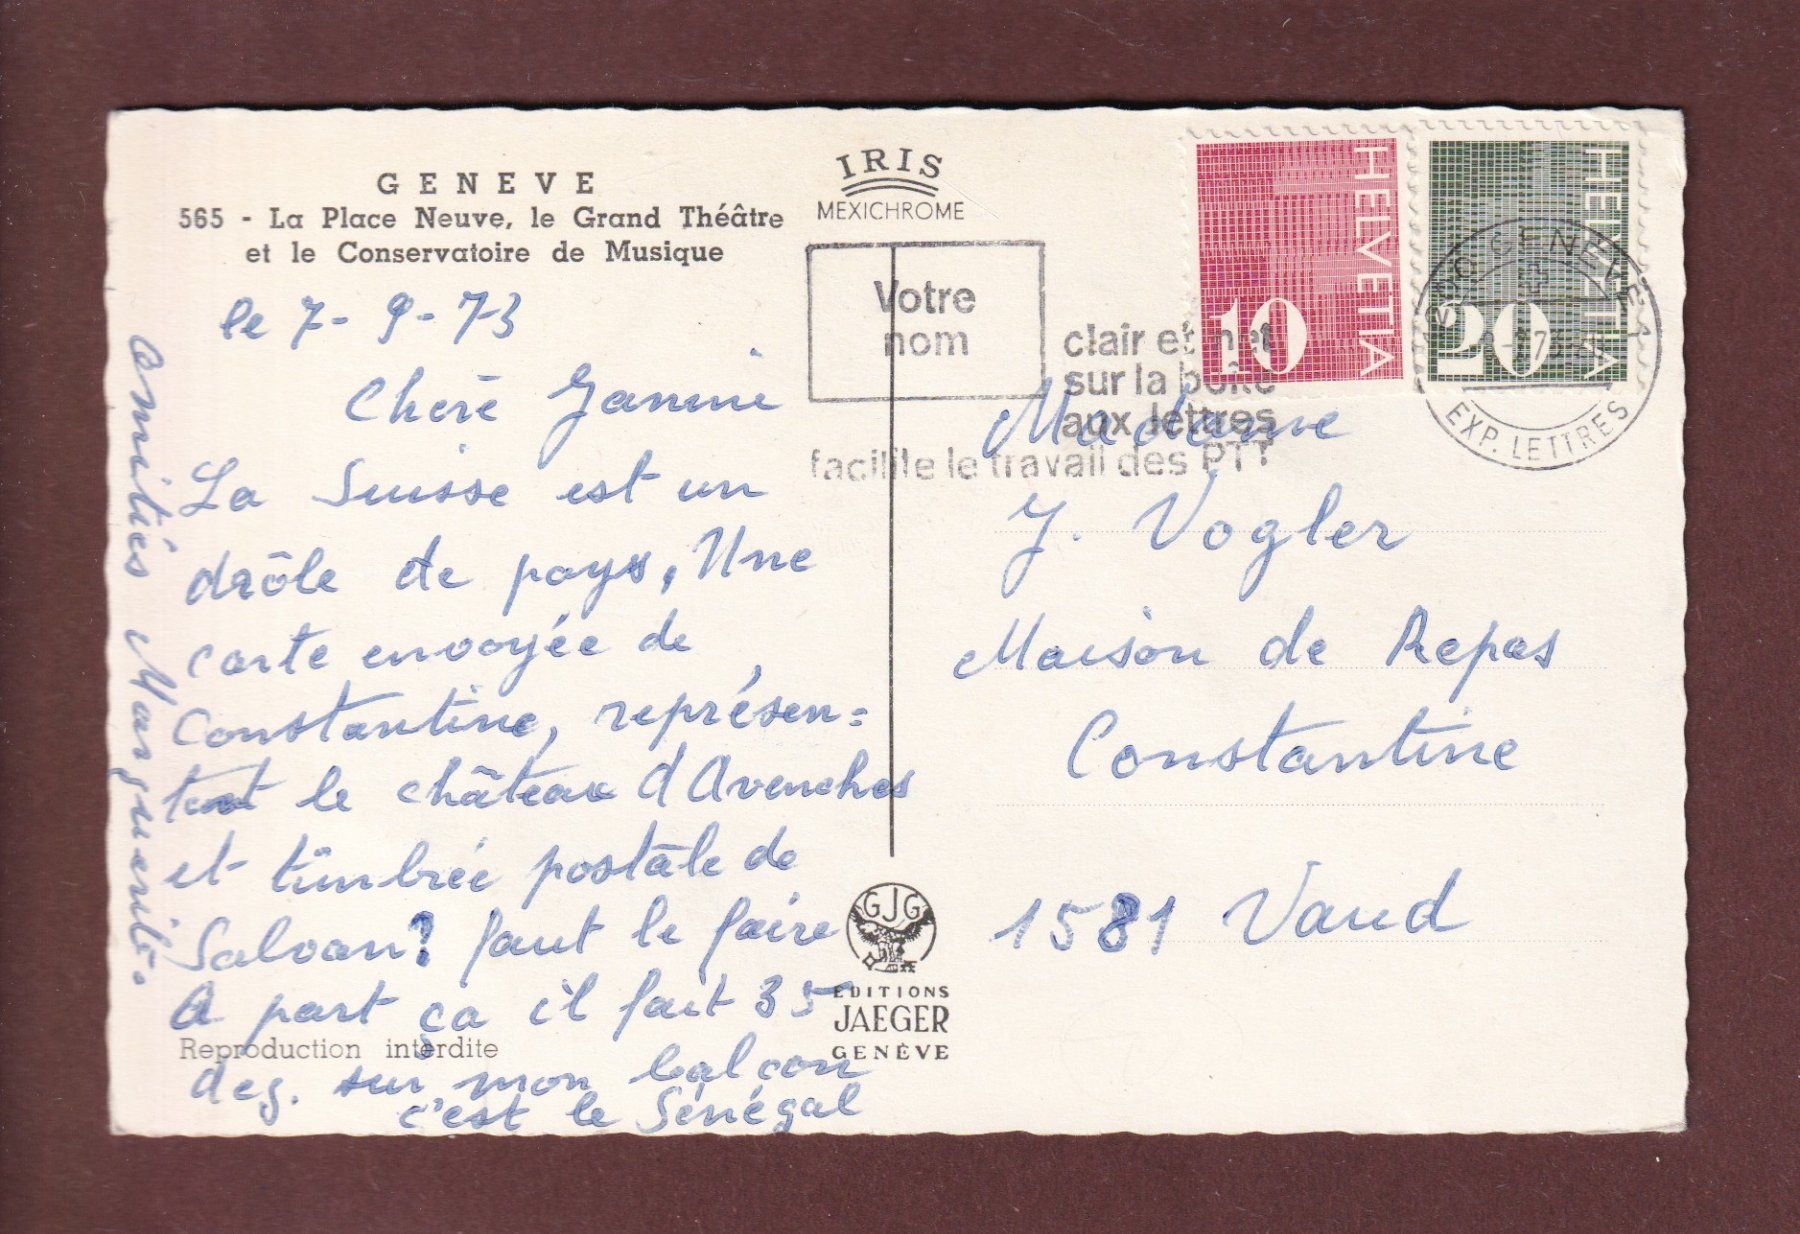 GENEVE
565 - La Place Neuve, le Grand Théâtre
et le Conservatoire de Musique
le 7-9-73
Chère Janine
La Suisse est un
drôle de pays, Une
carte envoyée de
Constantine, représen=
tant le château d'Avenches
et timbrée postale de
Salvan? faut le faire
A part ça il fait 35
deg. sur mon balcon
c'est le Sénégal
amitiés Marguerite.
Reproduction interdite
IRIS
MEXICHROME
Votre
nom
clair et net
sur la boîte
aux lettres
facilite le travail des PTT
HELVETIA
10
HELVETIA
20
GENEVE 1
EXP. LETTRES
Madame
J. Vogler
Maison de Repas
Constantine
1581 Vaud
GJG
EDITIONS
JAEGER
GENÈVE